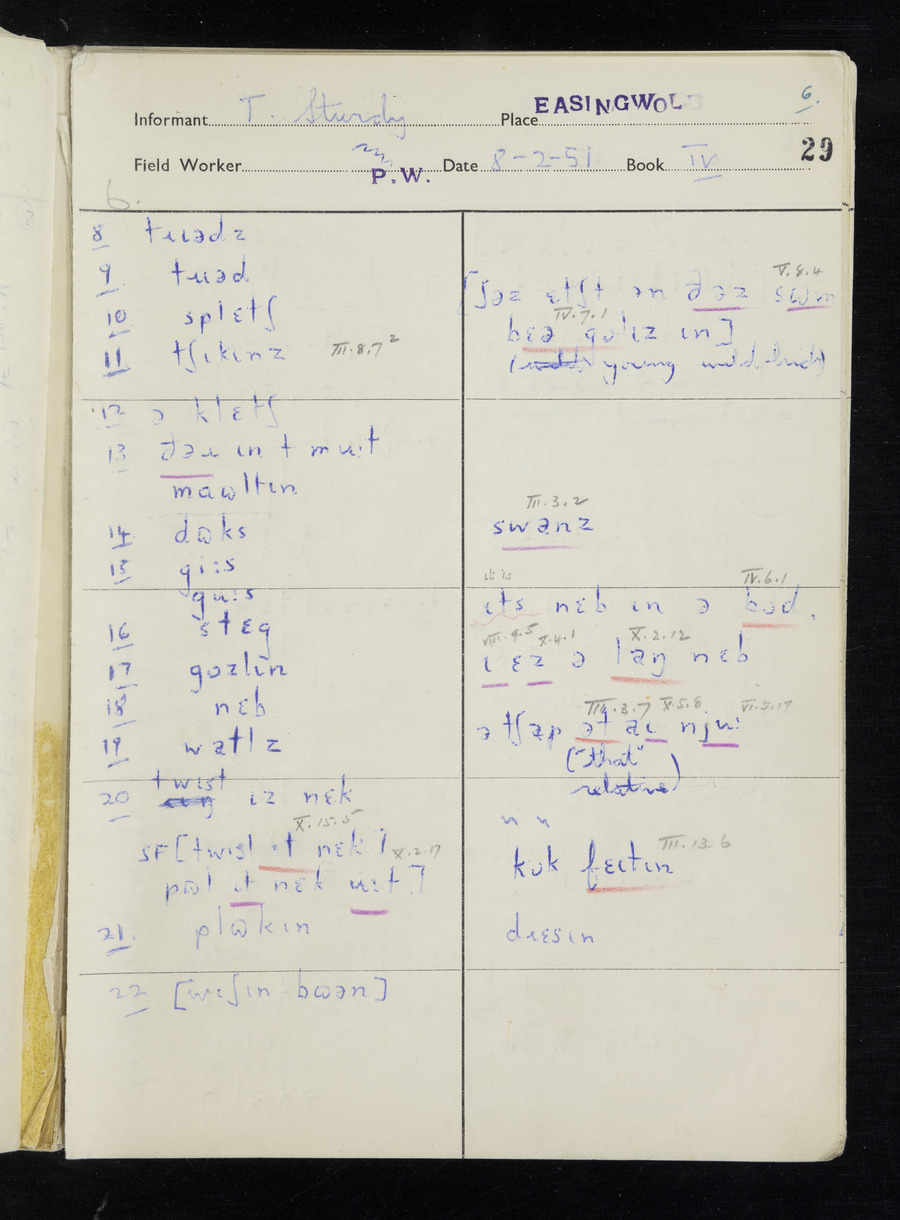 6.
Informant T. Sturdy Place EASINGWOLD
29
Field Worker P.W. Date 8-2-51 Book IV
6.
8 tɹɪədz
9 tɹɪəd
10 splɛtʃ
11 tʃɪkɪnz III.8.7²
12 ə klɛtʃ
13 ðəɹ ɪn t mu:t
maʊltɪn
14 dʊks
15 gi:s
gu:s
16 stɛg
17 gɒzlɪn
18 nɛb
19 watlz
20 twɪst ɪz nɛk
X.15.5
SF [twɪst ɪt nɛk] X.2.17
pʊl ɪt nɛk u:t]
21. plʊkɪn
22 [wɛʃɪn bʊən]
V.8.4
[ʃəz ɛtʃt ən ðəz sʊm
IV.7.1
bɛə gɒlɪz ɪn]
young
III.3.2
swanz
it is IV.6.1
ɪts nɛb ɪn ə bʊd.
VIII.9.5 X.4.1 X.2.12
ɪ ɛz ə laŋ nɛb
III.3.7 X.5.8 VI.5.17
ə tʃap ət aɪ nju:
("that"
relative)
" "
III.13.6
kʊk fɛɪtɪn
dɹɛsɪn